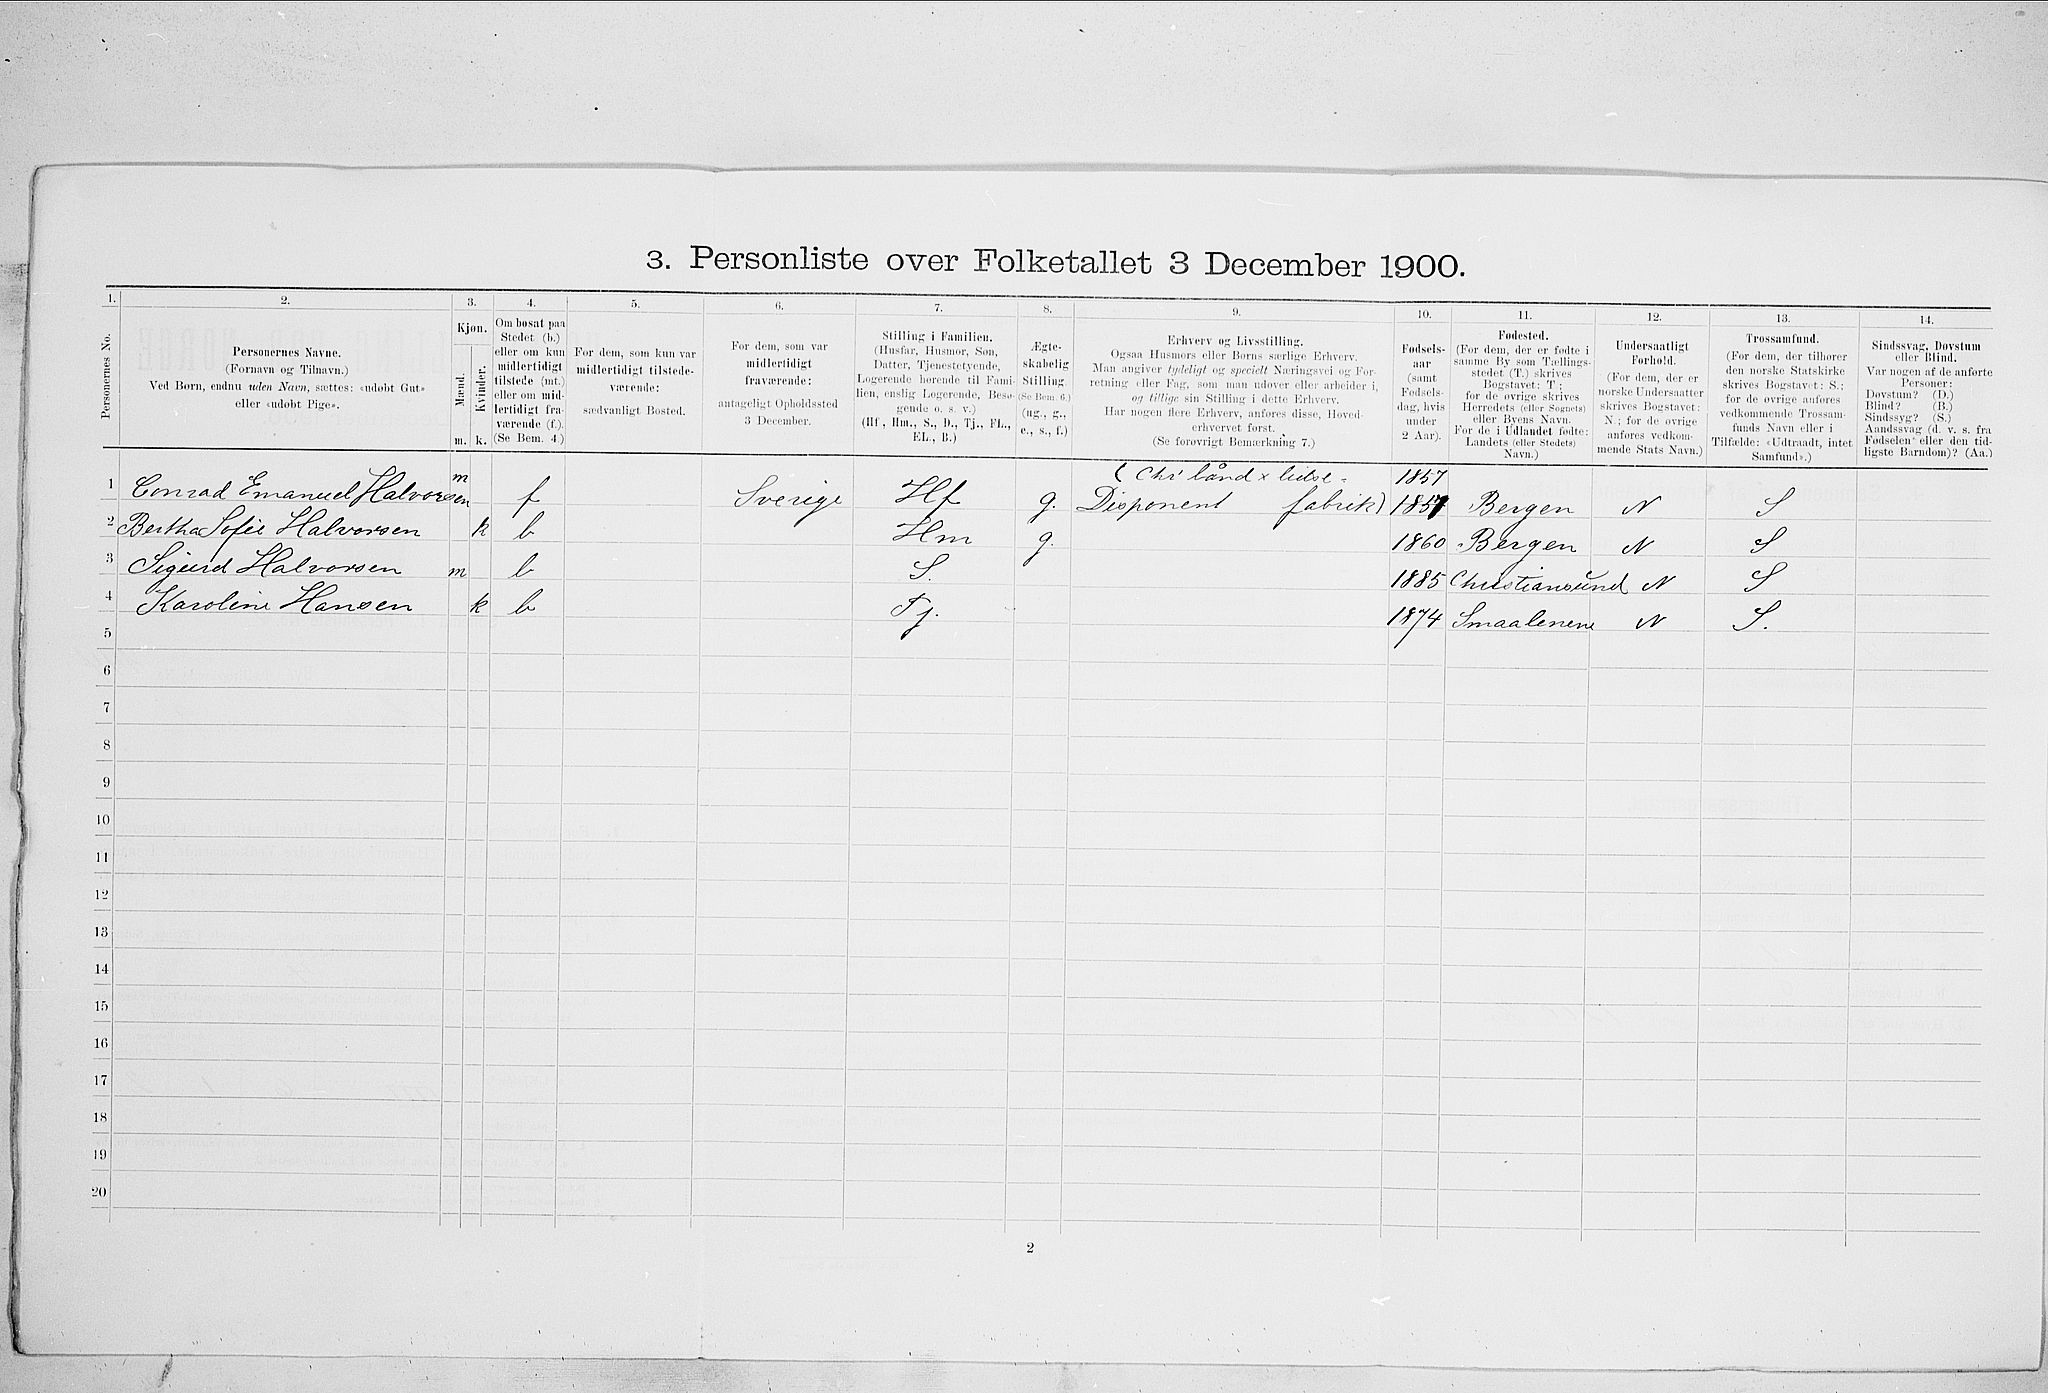 3. Personliste over Folketallet 3 December 1900.
1. 2. 3. 4. 5. 6. 7. 8. 9. 10. 11. 12. 13. 14.
Personernes No.
Personernes Navne.
(Fornavn og Tilnavn.)
Ved Børn, endnu uden Navn, sættes: «udøbt Gut»
eller «udøbt Pige».
Kjøn.
Mænd.
Kvinder.
m. k.
Om bosat paa
Stedet (b.)
eller om kun
midlertidigt
tilstede (mt.)
eller om mid-
lertidigt fra-
værende (f.).
(Se Bem. 4.)
For dem, som kun var
midlertidigt tilstede-
værende:
sædvanligt Bosted.
For dem, som var
midlertidigt
fraværende:
antageligt Opholdssted
3 December.
Stilling i Familien.
(Husfar, Husmor, Søn,
Datter, Tjenestetyende,
Logerende hørende til Fami-
lien, enslig Logerende, Besø-
gende o. s. v.)
(Hf., Hm., S., D., Tj., FL.,
EL., B.)
Ægte-
skabelig
Stilling.
(Se Bem. 6.)
(ug., g.,
e., s., f.)
Erhverv og Livsstilling.
Ogsaa Husmors eller Børns særlige Erhverv.
Man angiver tydeligt og specielt Næringsvei og For-
retning eller Fag, som man udøver eller arbeider i,
og tillige sin Stilling i dette Erhverv.
Har nogen flere Erhverv, anføres disse, Hoved-
erhvervet først.
(Se forøvrigt Bemærkning 7.)
Fødsels-
aar
(samt
Fødsels-
dag, hvis
under
2 Aar).
Fødested.
(For dem, der er fødte i
samme By som Tællings-
stedet (T.) skrives
Bogstavet: T;
for de øvrige skrives
Herredets (eller Sognets)
eller Byens Navn.
For de i Udlandet fødte:
Landets (eller Stedets)
Navn.)
Undersaatligt
Forhold.
(For dem, der er
norske Undersaatter
skrives Bogstavet:
N.; for de øvrige
anføres vedkom-
mende Stats Navn.)
Trossamfund.
(For dem, der tilhører
den norske Statskirke
skrives Bogstavet: S.;
for de øvrige anføres
vedkommende Trossam-
funds Navn eller i
Tilfælde: «Udtraadt, intet
Samfund».)
Sindssvag, Døvstum
eller Blind.
Var nogen af de anførte
Personer:
Døvstum? (D.)
Blind? (B.)
Sindssyg? (S.)
Aandssvag (d. v. s. fra
Fødselen eller den tid-
ligste Barndom)? (Aa.)
1857
1 Conrad Emanuel Halvorsen m f Sverige Hf g. Disponent fabrik) 1857 Bergen N S
2 Bertha Sofie Halvorsen k b Hm g. 1860 Bergen N S
3 Sigurd Halvorsen m b S. 1885 Christiansund N S
4 Karoline Hansen k b Tj. 1874 Smaalenene N S.
5
6
7
8
9
10
11
12
13
14
15
16
17
18
19
20
2